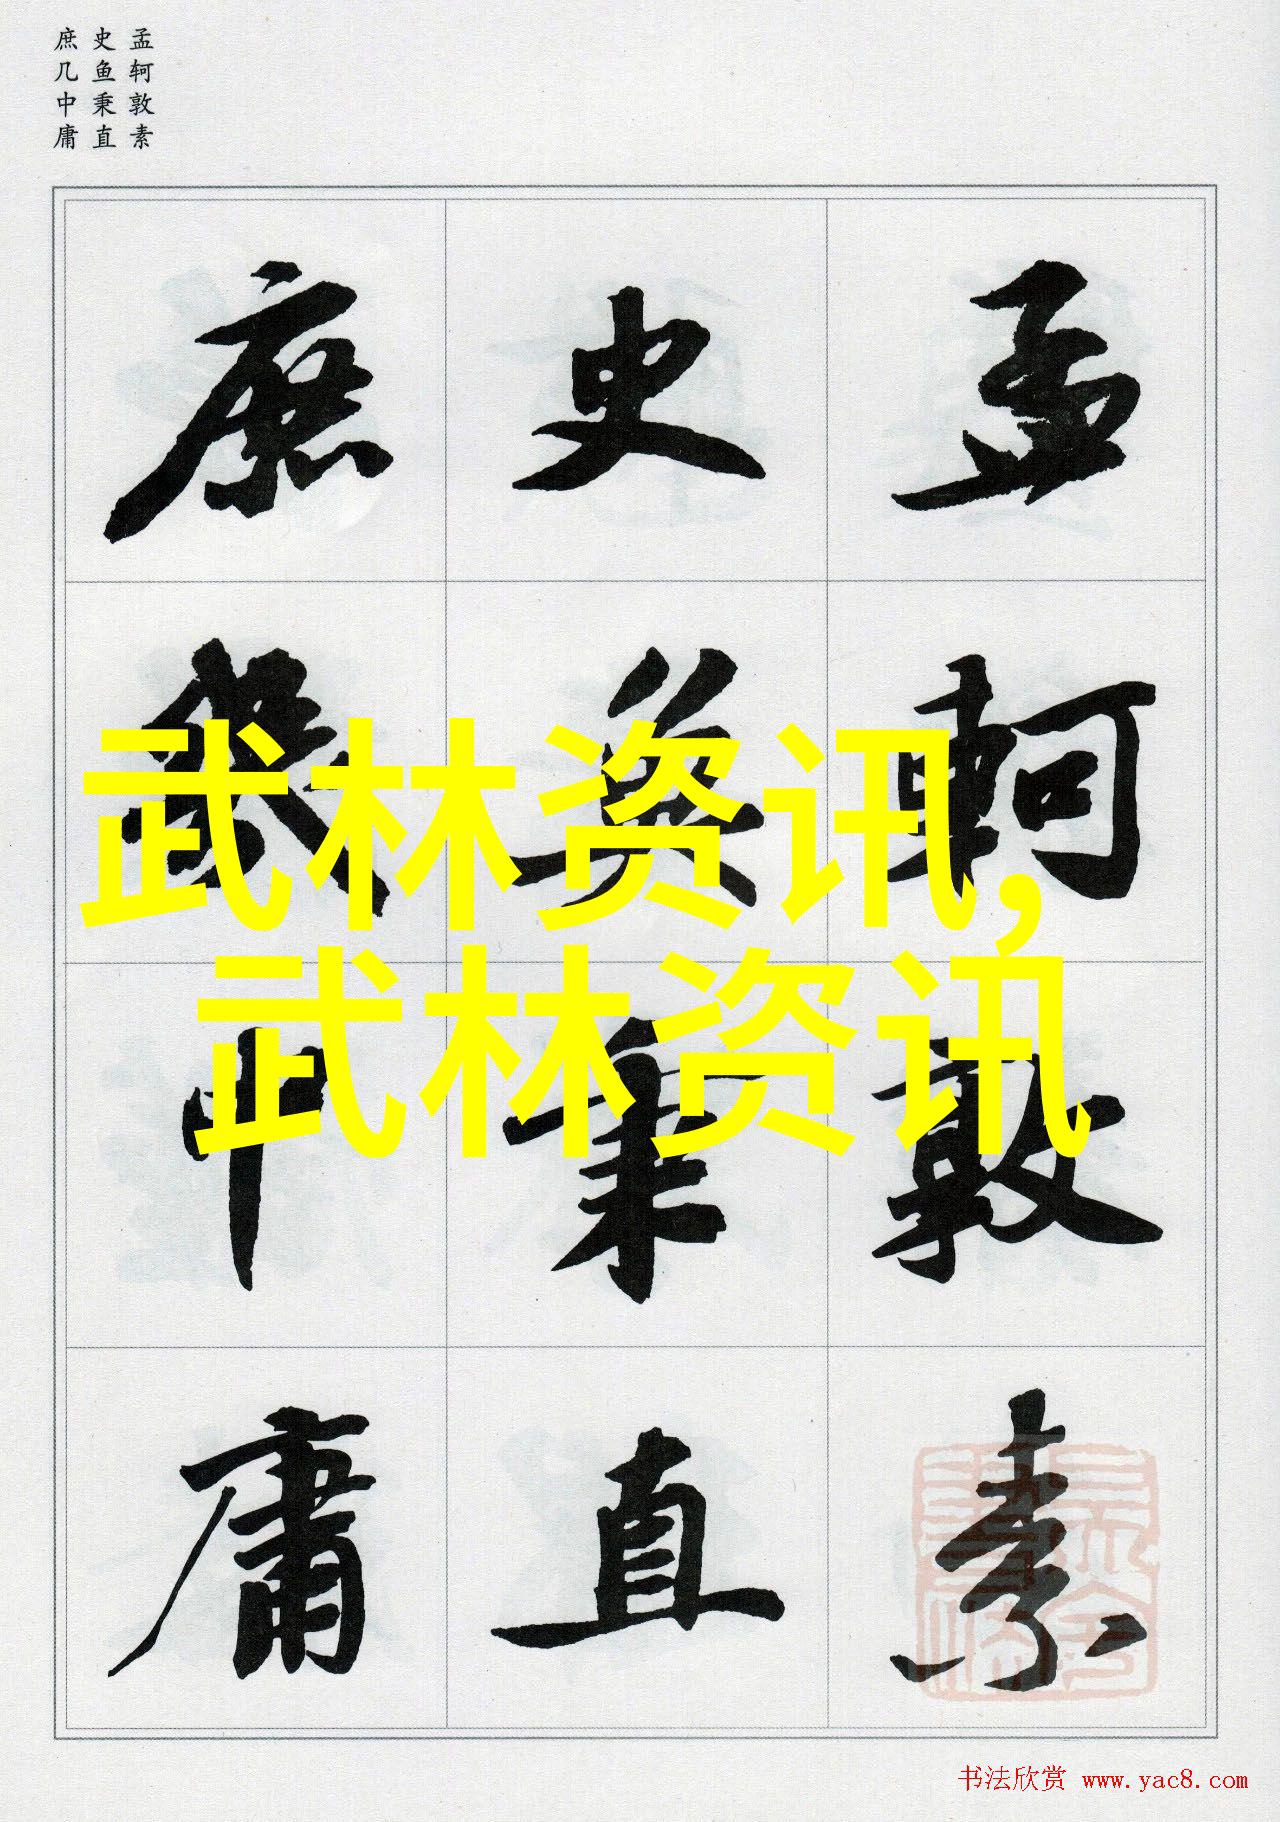 孟轲敦素
史鱼秉直
庶几中庸
孟軻敦素
史魚秉直
庶幾中庸
武林资讯,
武林资讯
书法欣赏 www.yac8.com